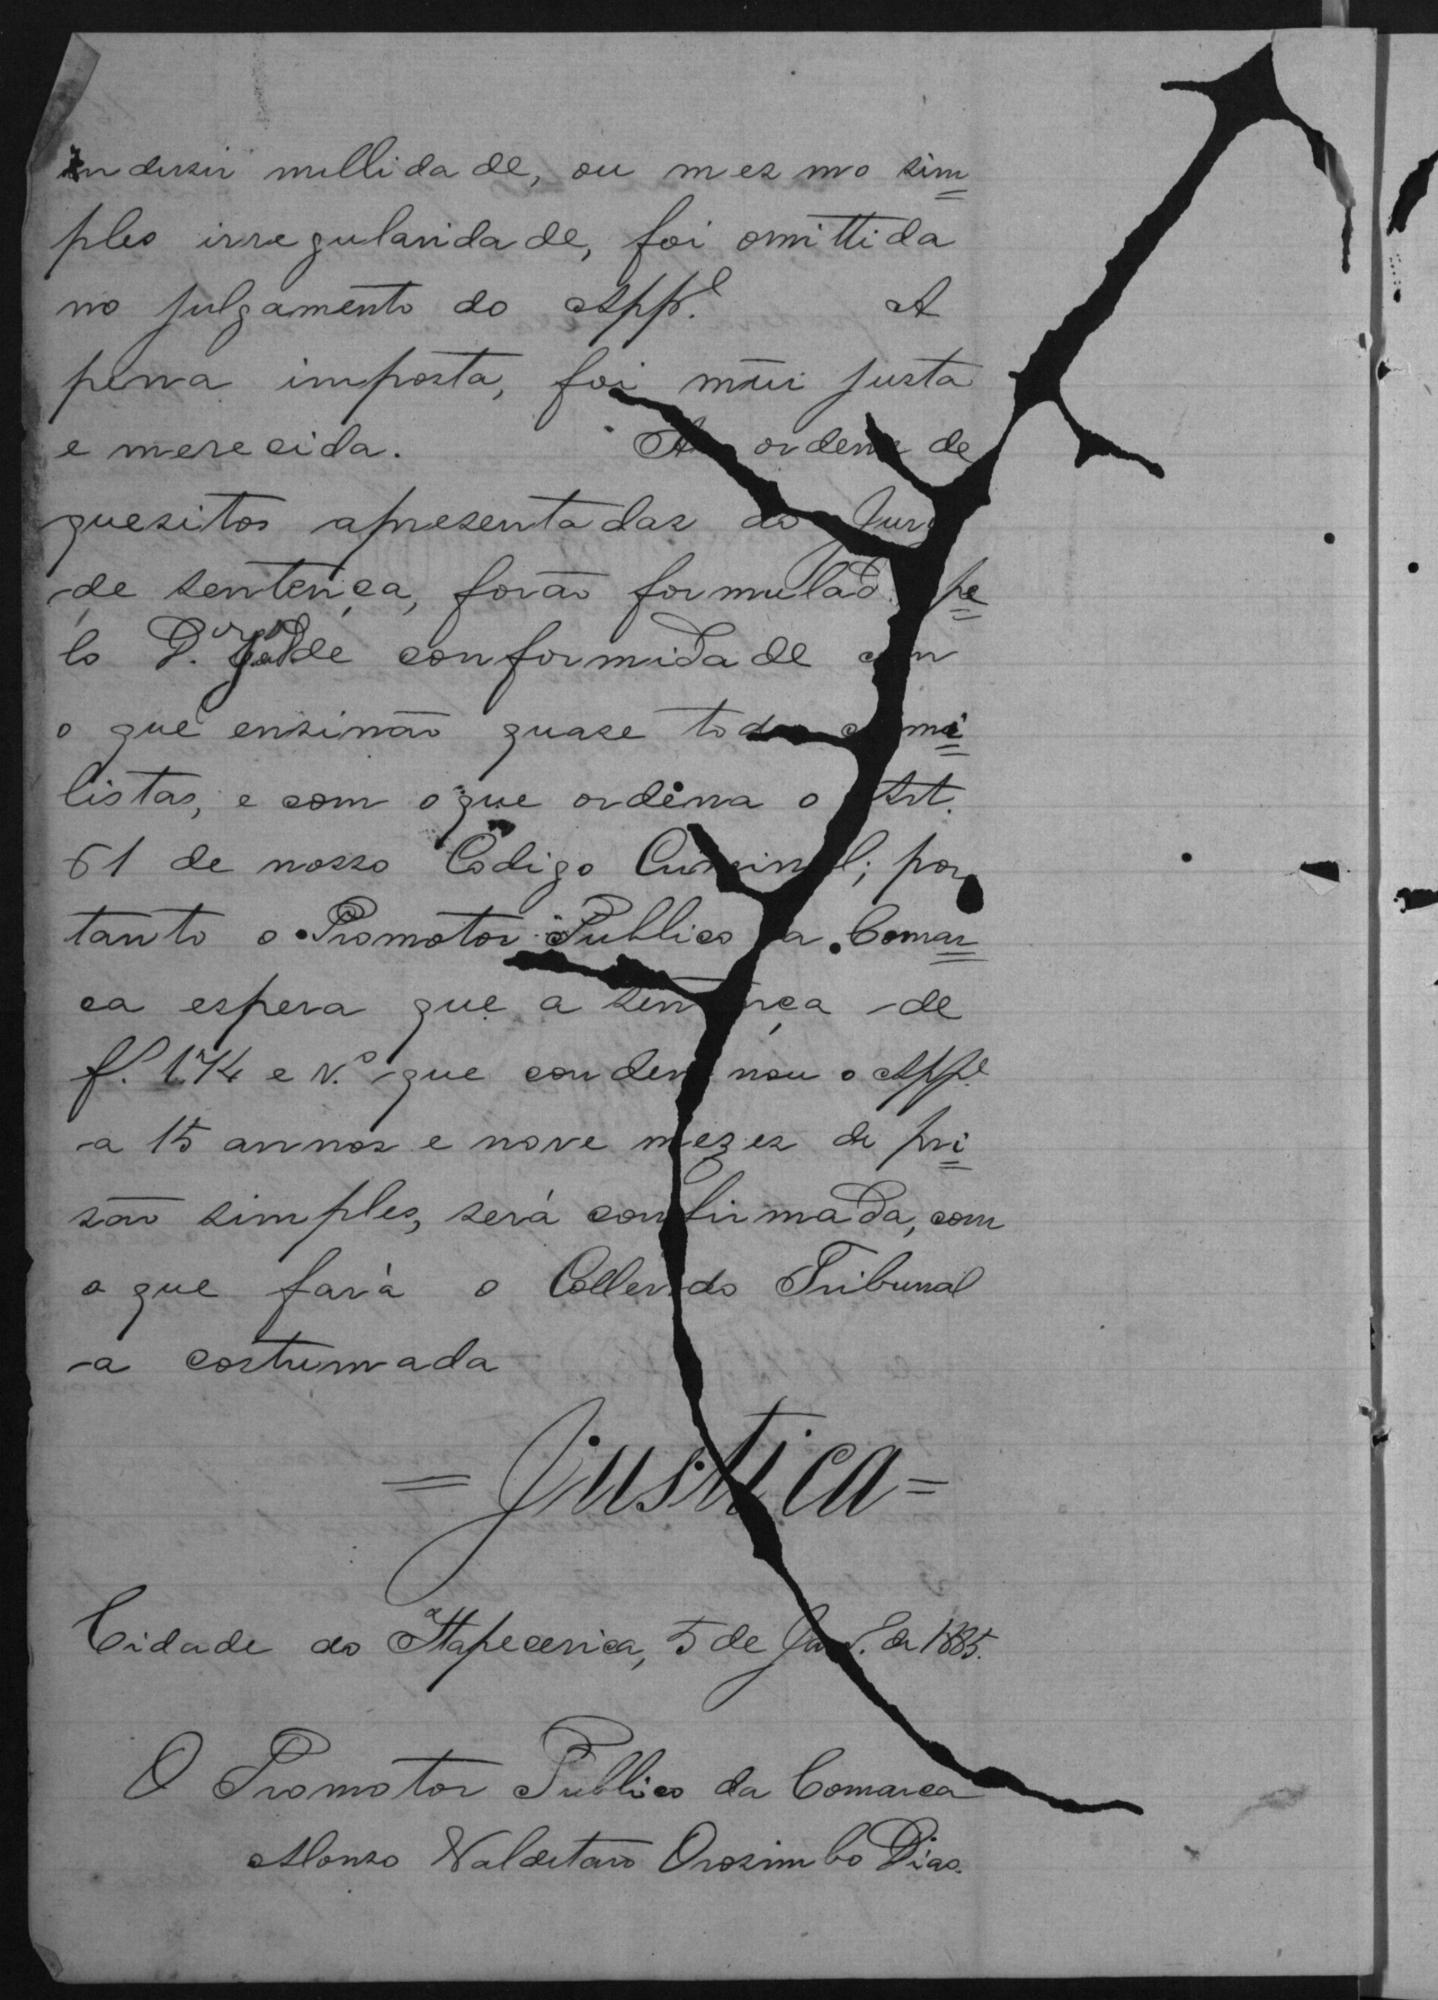 indusir nullidade, ou mesmo sim=
ples irregularidade, foi omittida
no julgamento do App.e A
pena imposta, foi mũi justa
e merecida. As ordens de
quesitos apresentadas ao Jury
de sentença, forão formulad pe=
lo D.or de conformidade com
o que ensinão quase todos crimi=
listas, e com o que ordena o Art.
61 de nosso Codigo Criminal; por
tanto o Promotor Publico da Comar=
ca espera que a sentença de
f. 174 e v.o que condemnou o App.e
a 15 annos e nove mezes de pri=
são simples, será confirmada, com
o que fará o Collendo Tribunal
a costumada
= Justiça =
Cidade do Itapecerica, 5 de Jan.o de 1885.
O Promotor Publico da Comarca
Alonso Valdetaro Orosimbo Dias.